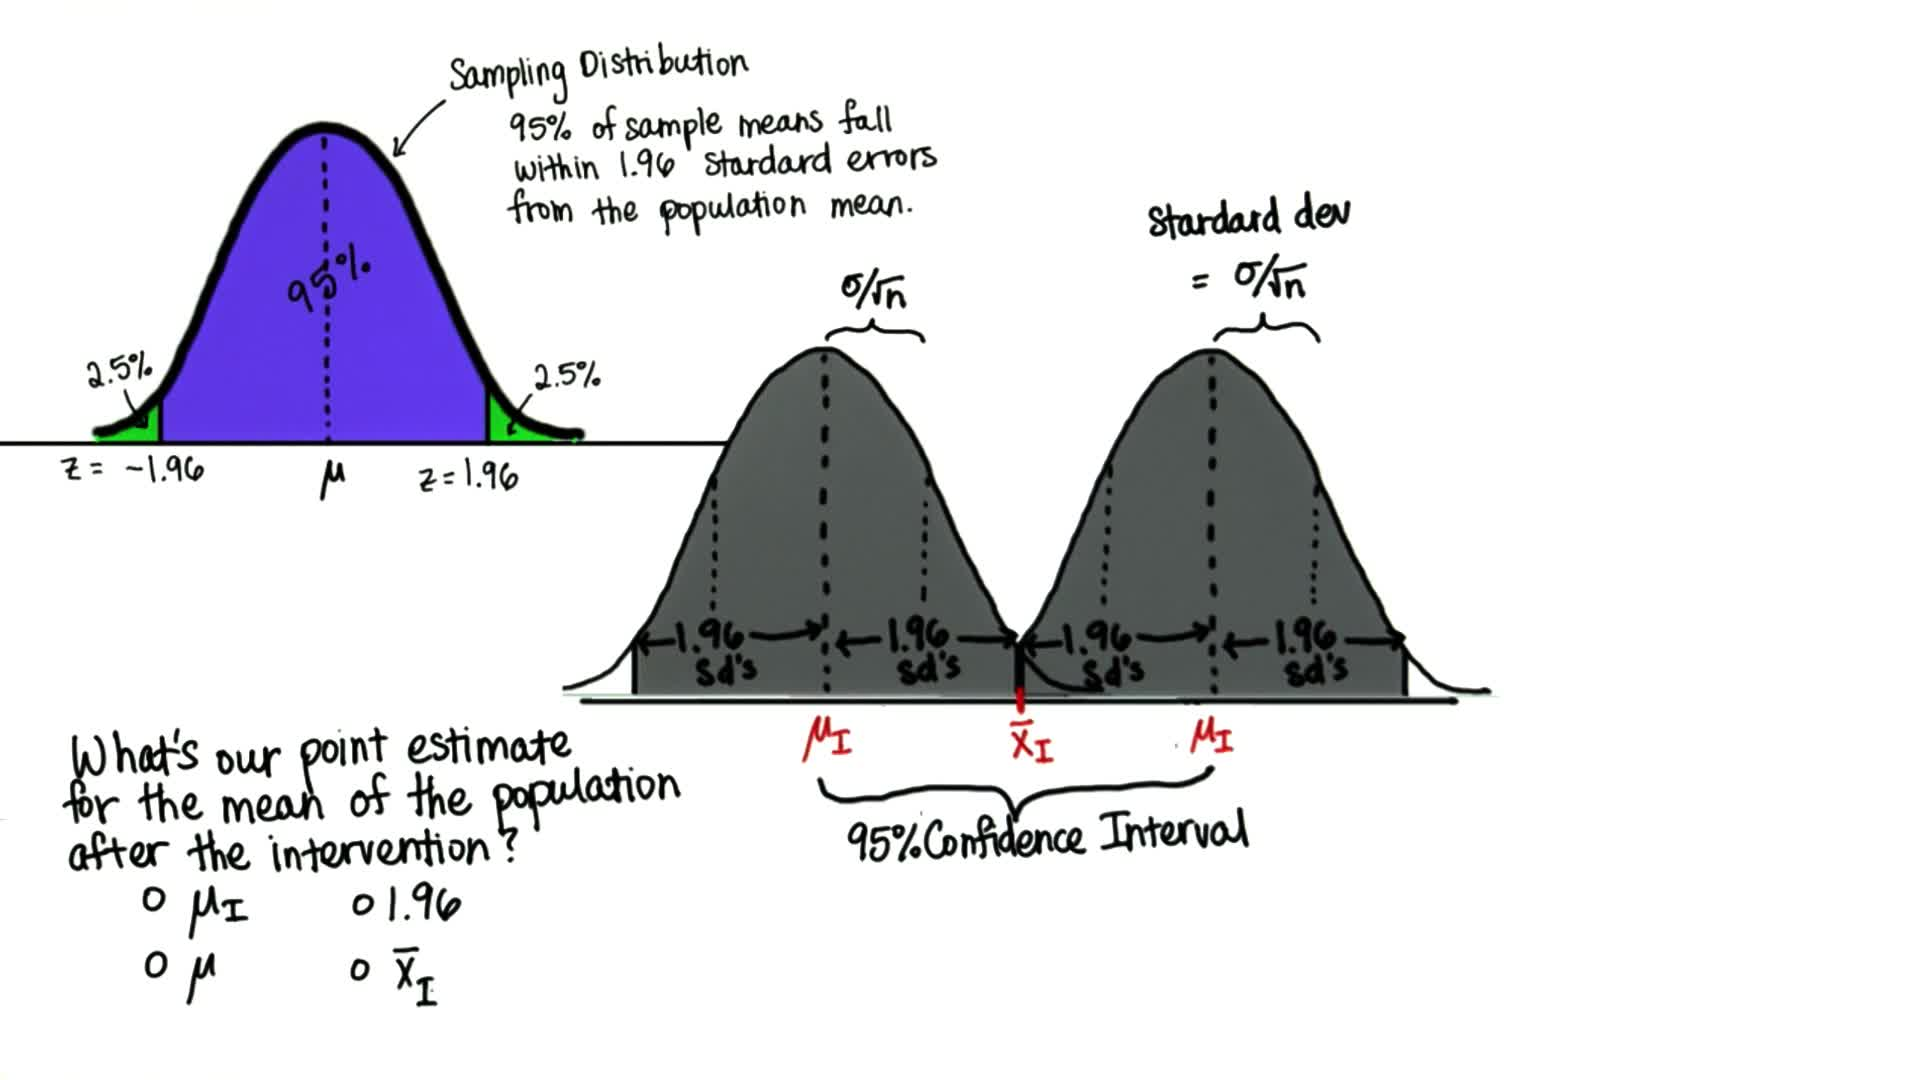 Sampling Distribution
95% of sample means fall
within 1.96 stardard errors
from the population mean.
95%
2.5%
2.5%
z = -1.96
μ
z = 1.96
stardard dev
= σ/√n
σ/√n
1.96
sd's
1.96
sd's
1.96
sd's
1.96
sd's
μI
x̄I
μI
95% Confidence Interval
What's our point estimate
for the mean of the population
after the intervention?
O μI O 1.96
O μ O x̄I